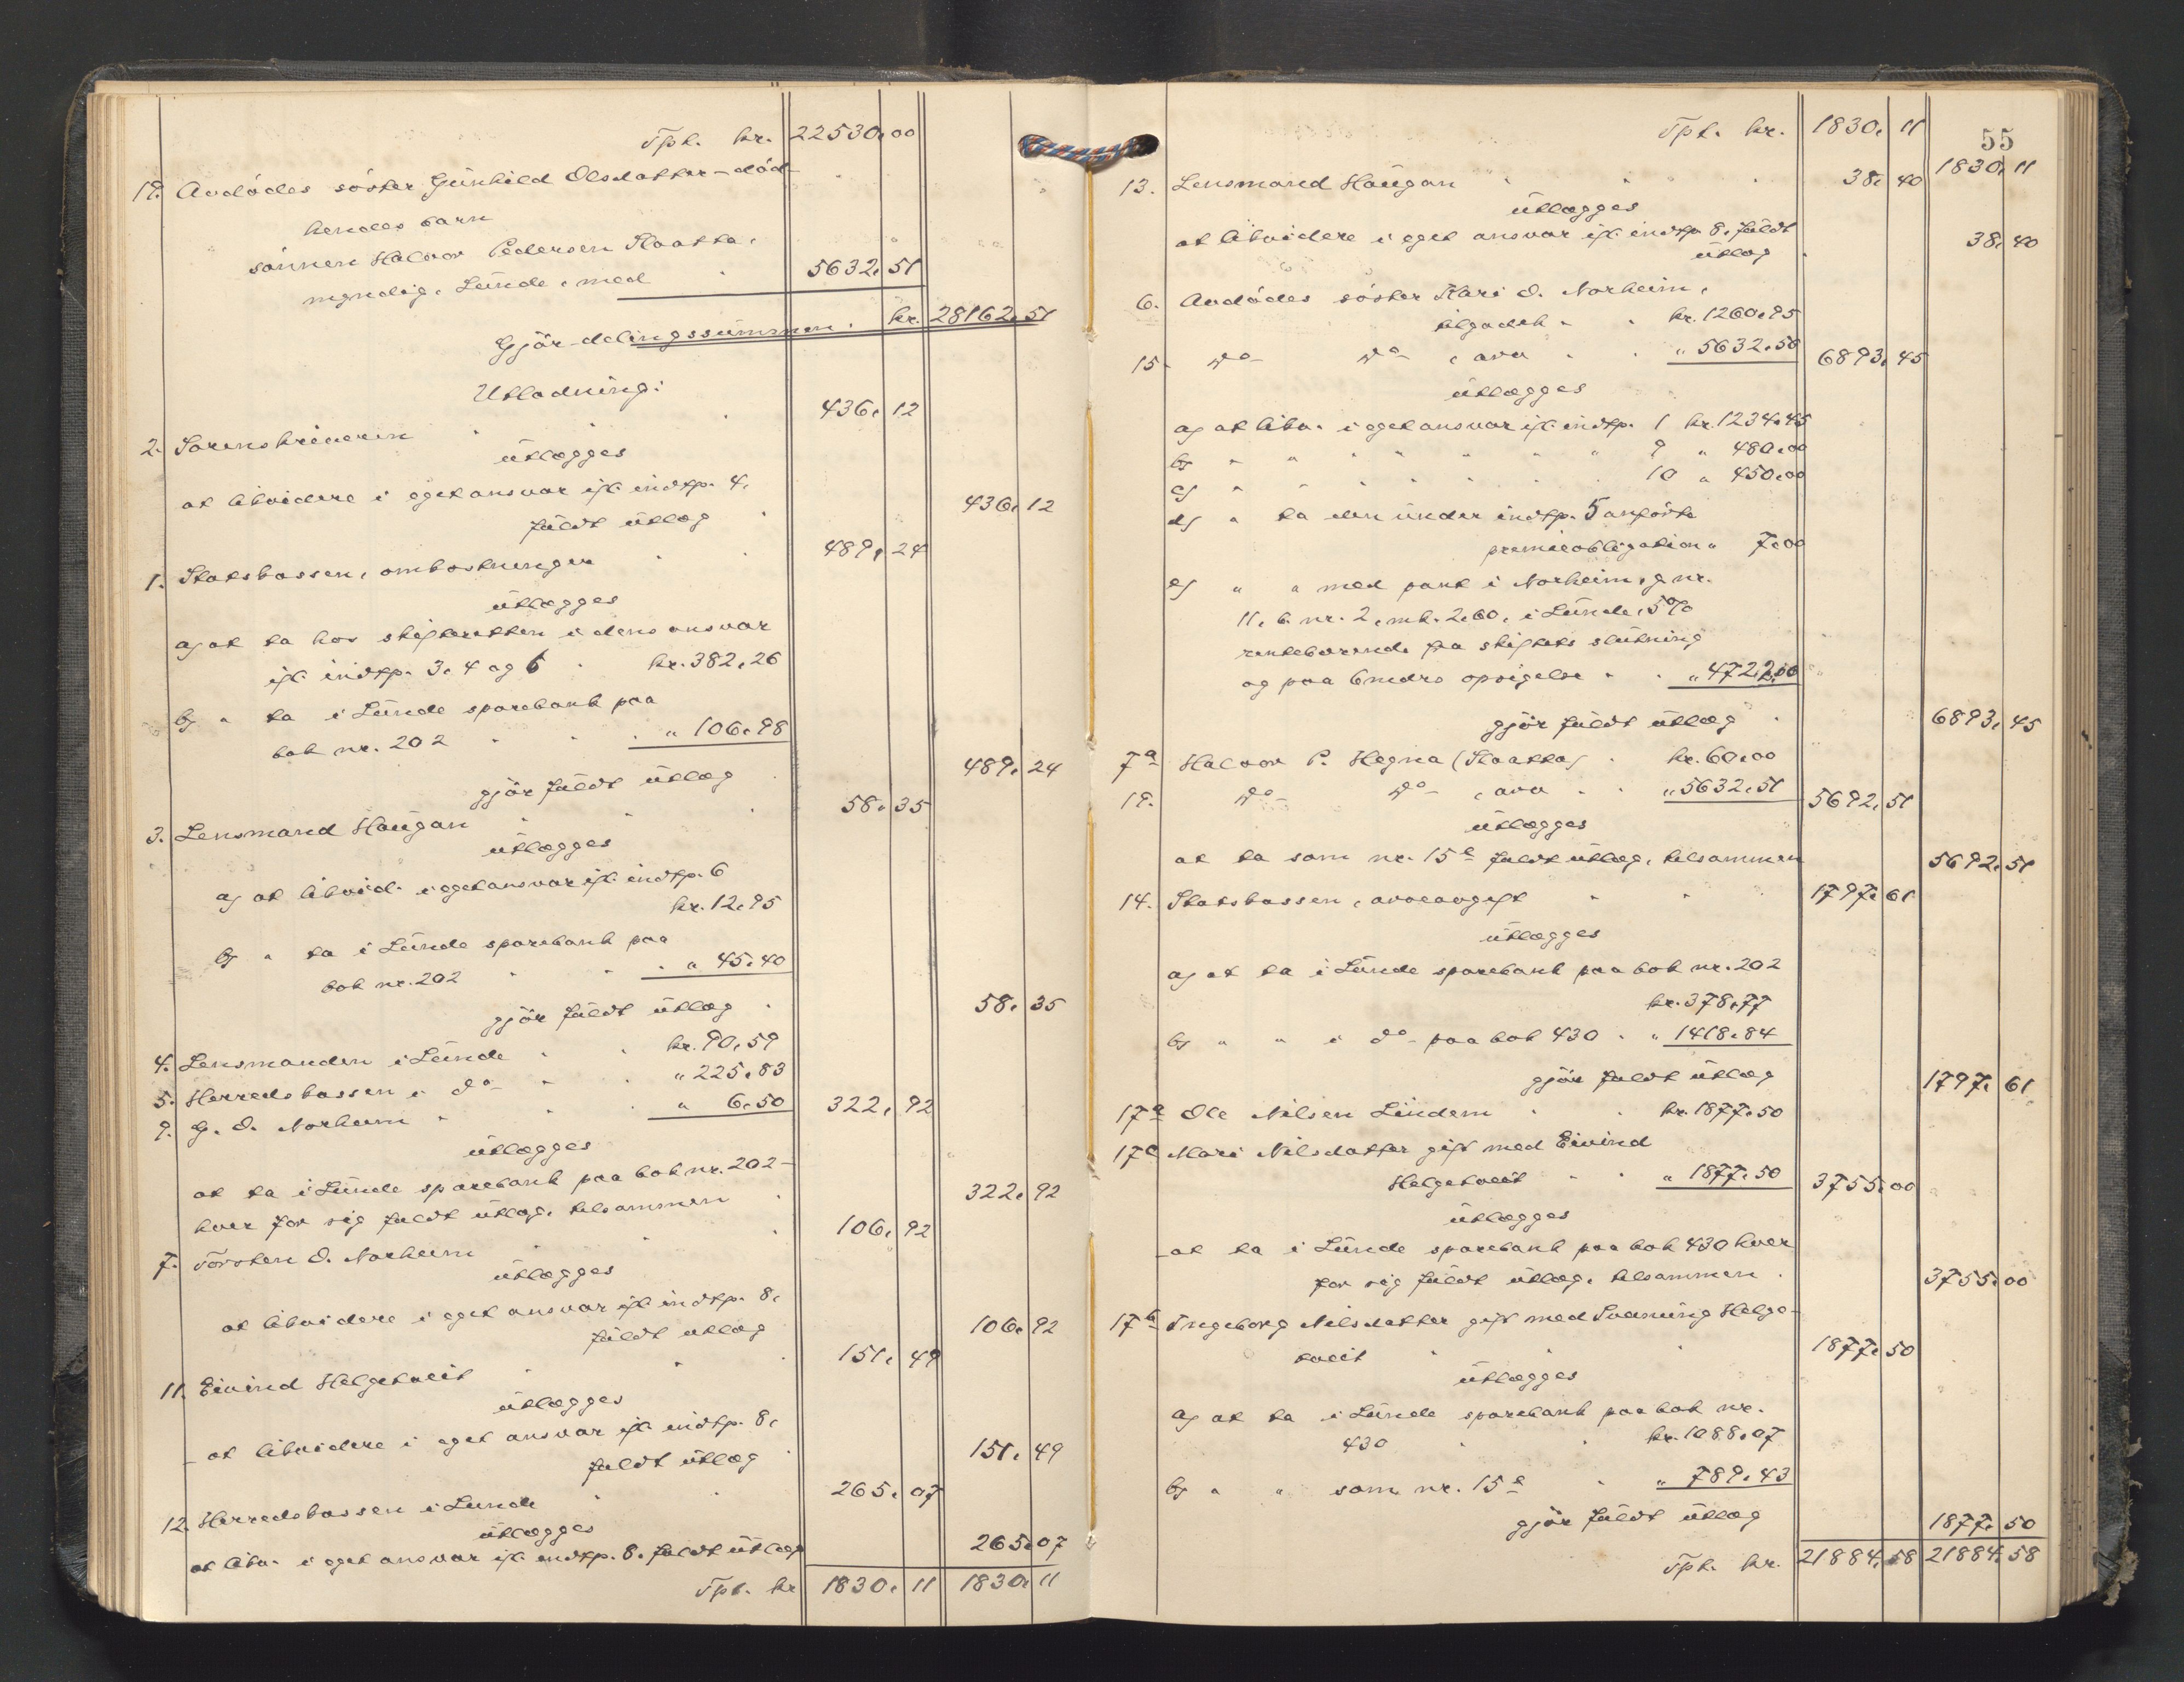 Tpt. kr. 22530,00
19. Avdödes söster Gunhild Olsdatter - död -
hendes barn
sönnen Halvor Pedersen Slaatta,
myndig, Lunde, med 5632,51
Gjör delingssummen. kr. 28162,51
Utlodning:
2. Sorenskriveren 436,12
utlægges
at likvidere i eget ansvar ifl. indtp. 4,
fuldt utlæg 436,12
1. Statskassen, omkostninger 489,24
utlægges
a) at ta hos skifteretten i dens ansvar
ifl. indtp. 3, 4 og 6 kr. 382,26
b) " ta i Lunde sparebank paa
bok nr. 202 " 106,98
gjör fuldt utlæg 489,24
3. Lensmand Haugan 58,35
utlægges
a) at likvid. i eget ansvar ifl. indtp. 6
kr. 12,95
b) " ta i Lunde sparebank paa
bok nr. 202 " 45,40
gjör fuldt utlæg 58,35
4. Lensmanden i Lunde kr. 90,59
5. Herredskassen i do " 225,83
9. G. O. Norheim " 6,50 322,92
utlægges
at ta i Lunde sparebank paa bok nr. 202 -
hver for sig fuldt utlæg, tilsammen 322,92
7. Torsten O. Norheim 106,92
utlægges
at likvidere i eget ansvar ifl. indtp. 8,
fuldt utlæg 106,92
11. Eivind Helgetveit 151,49
utlægges
- at likvidere i eget ansvar ifl. indtp. 8,
fuldt utlæg 151,49
12. Herredskassen i Lunde 265,07
utlægges
at likv. i eget ansvar ifl. indtp. 8, fuldt utlæg 265,07
Tpt. kr 1830,11 1830,11
55
Tpt. kr. 1830,11 1830,11
13. Lensmand Haugan 38,40
utlægges
at likvidere i eget ansvar ifl. indtp. 8, fuldt
utlæg 38,40
6. Avdödes söster Kari O. Norheim,
tilgodeh. kr. 1260,95
15. do do, arv " 5632,50 6893,45
utlægges
a) at likv. i eget ansvar ifl. indtp. 1 kr. 1234,45
b) " " " " " " 9 " 480,00
c) " " " " " " 10 " 450,00
d) " ta den under indtp. 5 anförte
premieobligation " 7,00
e) " " med pant i Norheim, g. nr.
11, b. nr. 2, mk. 2,60, i Lunde, 5%
rentebærende fra skiftets slutning
og paa 6 mdrs opsigelse " 4722,00
gjör fuldt utlæg 6893,45
7a Halvor P. Hegna (Slaatta) kr. 60,00
19. do do, arv " 5632,51 5692,51
utlægges
at ta som nr. 15e fuldt utlæg, tilsammen 5692,51
14. Statskassen, arveavgift 1797,61
utlægges
a) at ta i Lunde sparebank paa bok nr. 202
kr. 378,77
b) " " i do paa bok 430 " 1418,84
gjör fuldt utlæg 1797,61
17a Ole Nilsen Lindem kr. 1877,50
17c Mari Nilsdatter gift med Eivind
Helgetveit " 1877,50 3755,00
utlægges
- at ta i Lunde sparebank paa bok 430 hver
for sig fuldt utlæg, tilsammen 3755,00
17b Ingeborg Nilsdatter gift med Svenung Helge-
tveit 1877,50
utlægges
a) at ta i Lunde sparebank paa bok nr.
430 kr. 1088,07
b) " " som nr. 15e " 789,43
gjör fuldt utlæg 1877,50
Tpt. kr. 21884,58 21884,58